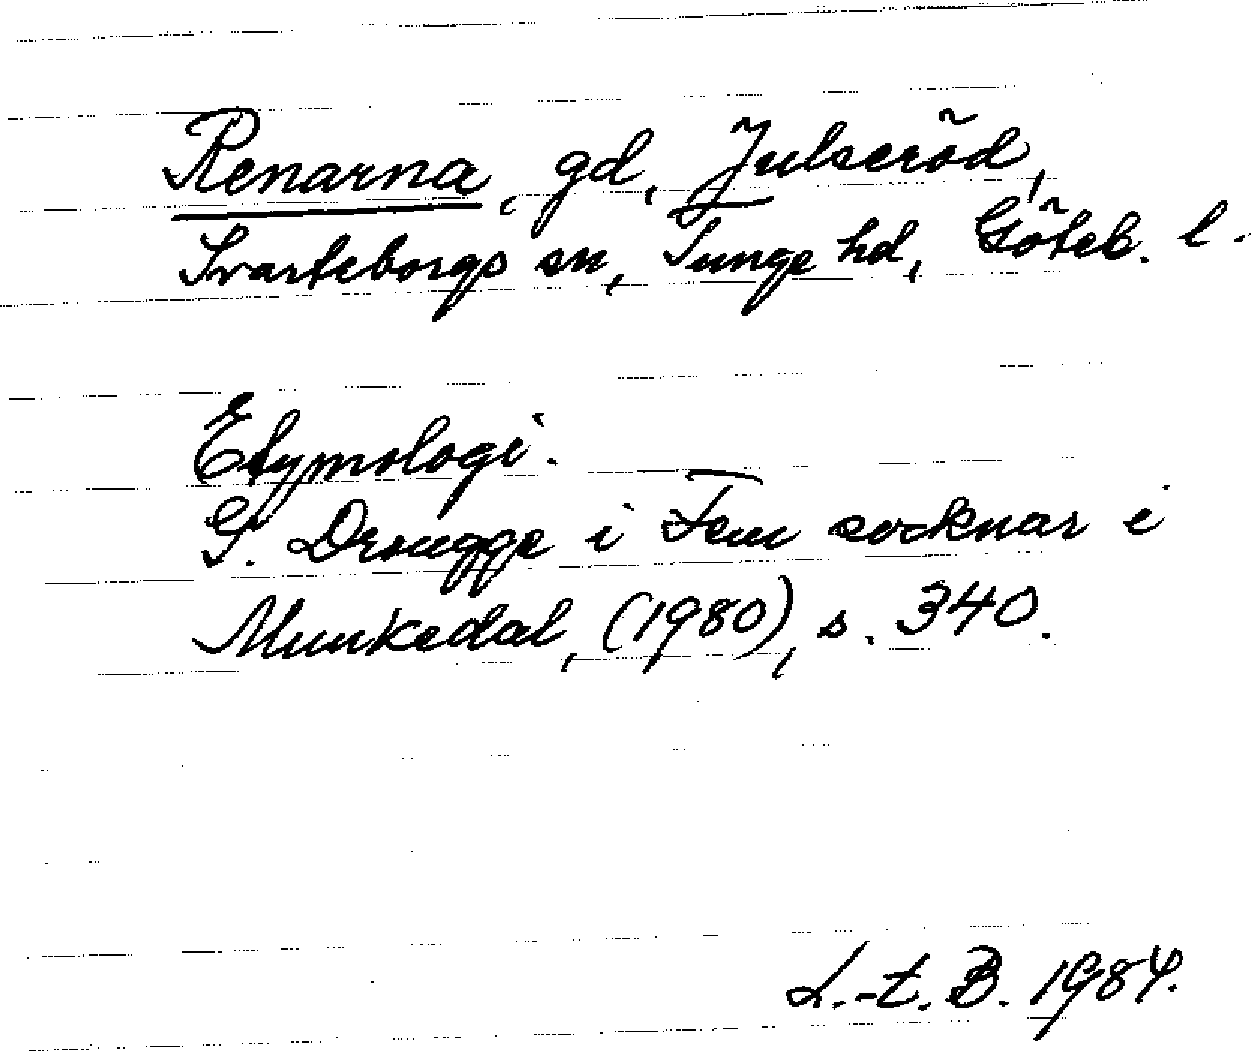 Renarna, gd, Julseröd,
Svarteborgs sn, Tunge hd, Göteb. l.
Etymologi.
G. Drougge i Fem socknar i
Munkedal, (1980), s. 340.
L.-t. B. 1984.